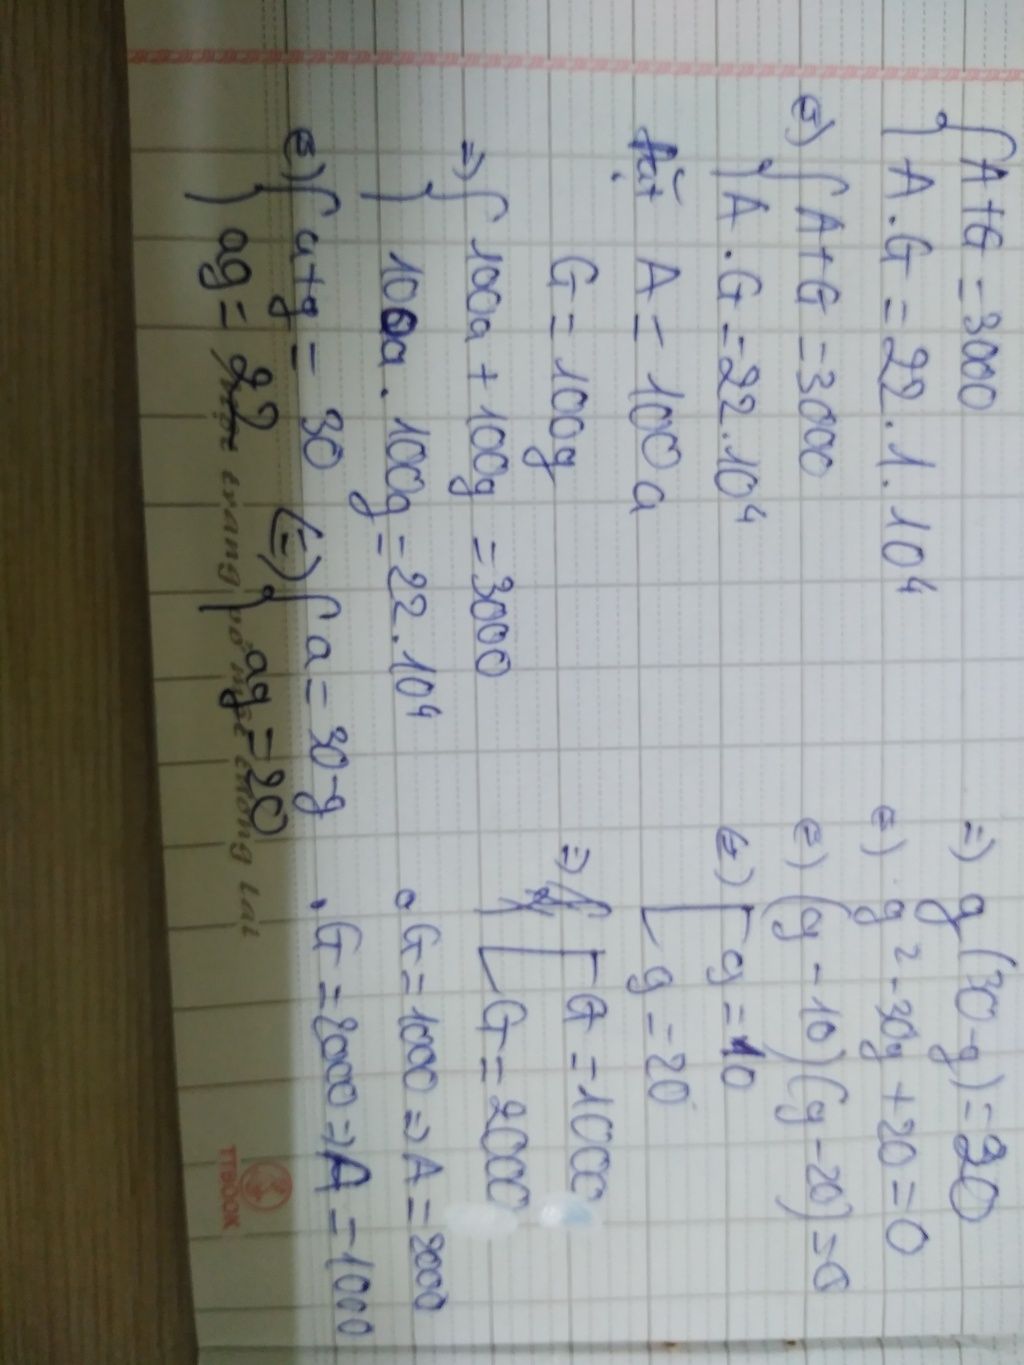 { A + G = 3000
A . G = 22 . 1 . 10⁴
⇔ { A + G = 3000
A . G = 22 . 10⁴
Đặt A = 100a
G = 100g
⇒ { 100a + 100g = 3000
100a . 100g = 22 . 10⁴
⇔ { a + g = 30
ag = 22
⇔ { a = 30 - g
ag = 20
⇒ g (30 - g) = 20
⇔ g² - 30g + 20 = 0
⇔ (g - 10)(g - 20) = 0
⇔ [ g = 10
g = 20
⇒ [ G = 1000
G = 2000
• G = 1000 ⇒ A = 2000
• G = 2000 ⇒ A = 1000
TTBOOK